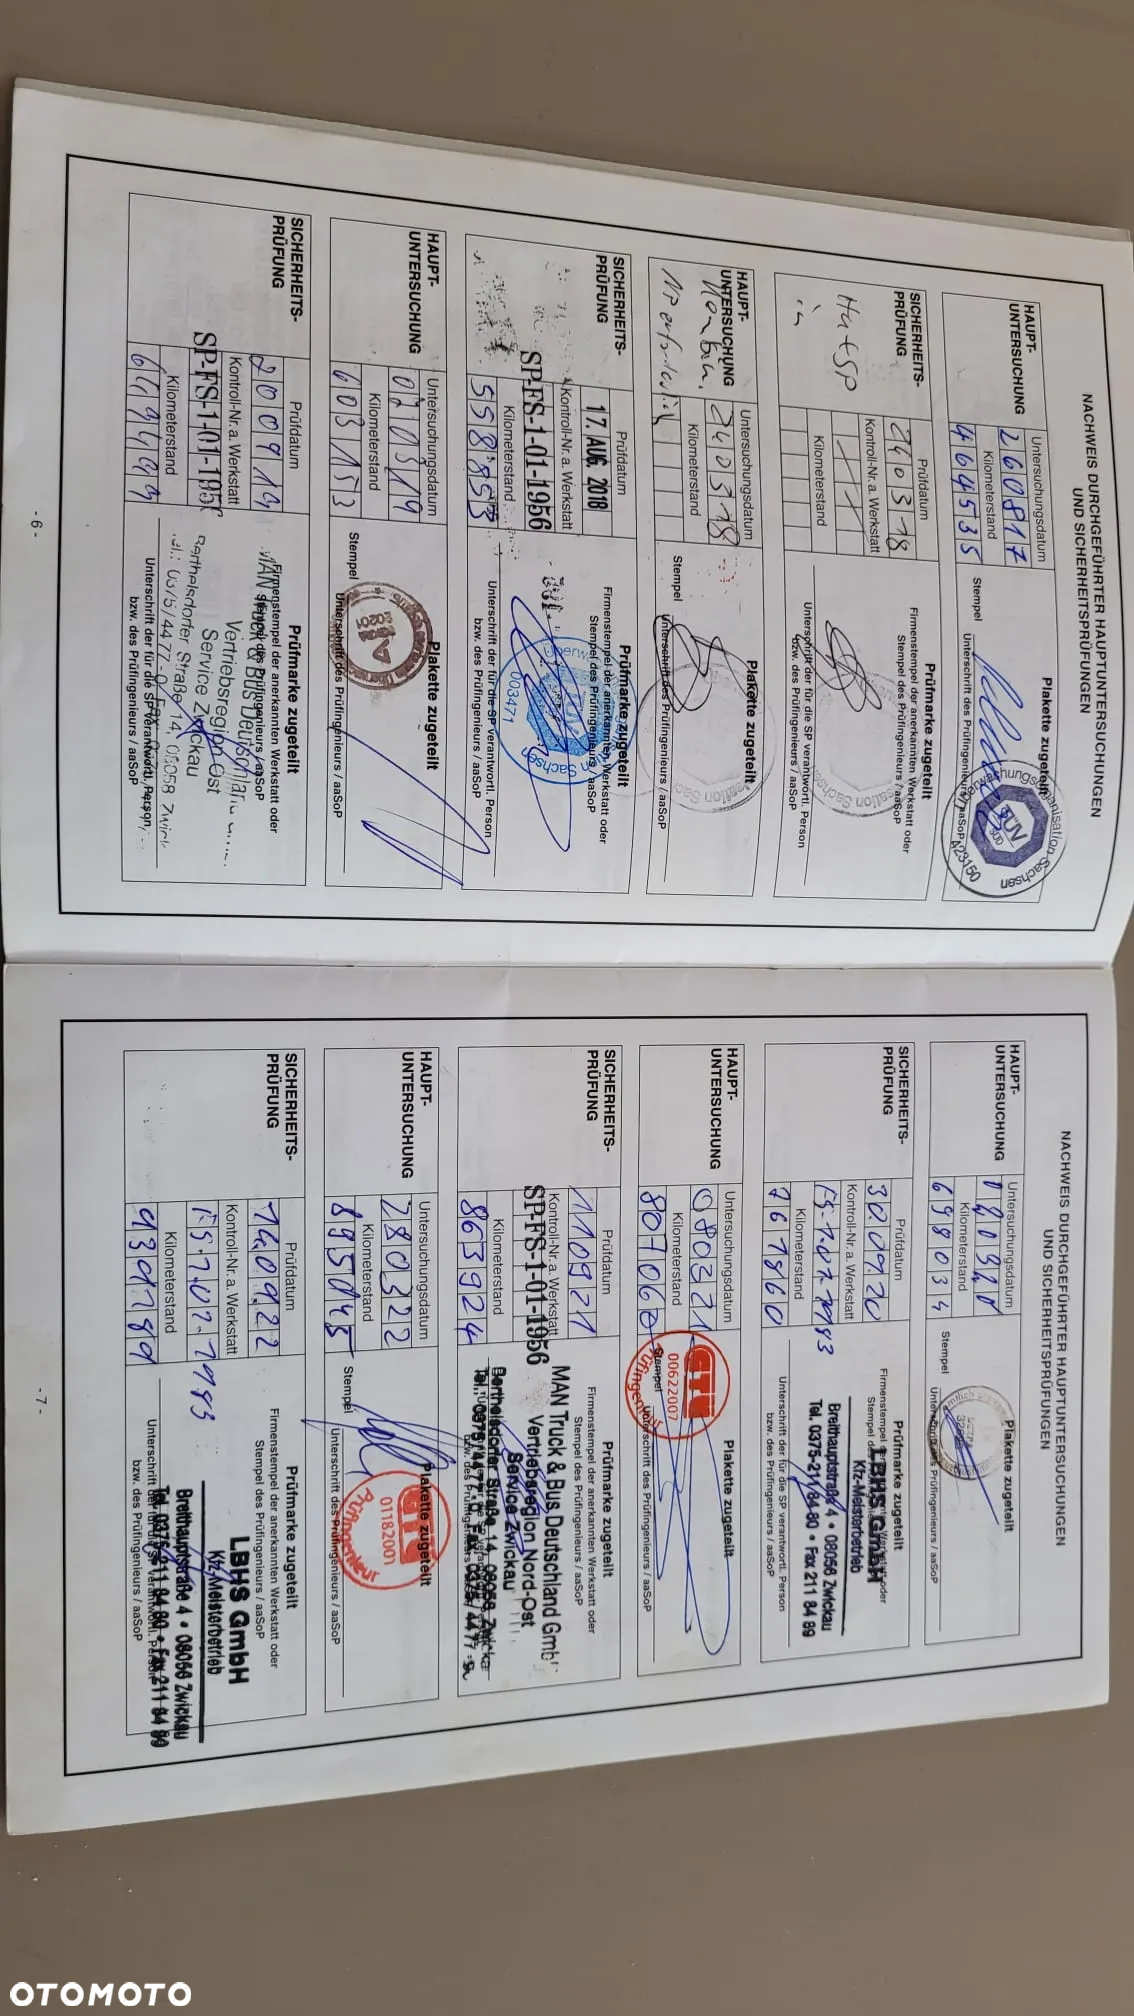 NACHWEIS DURCHGEFÜHRTER HAUPTUNTERSUCHUNGEN
UND SICHERHEITSPRÜFUNGEN
HAUPT-
UNTERSUCHUNG
Untersuchungsdatum
260817
Kilometerstand
464535
Plakette zugeteilt
Stempel
Unterschrift des Prüfingenieurs / aaSoP
Überwachungsorganisation Sachsen
TÜV
SÜD
423150
SICHERHEITS-
PRÜFUNG
Prüfdatum
240318
Kontroll-Nr. a. Werkstatt
Kilometerstand
Prüfmarke zugeteilt
Firmenstempel der anerkannten Werkstatt oder
Stempel des Prüfingenieurs / aaSoP
Unterschrift der für die SP verantwortl. Person
bzw. des Prüfingenieurs / aaSoP
HAUPT-
UNTERSUCHUNG
Untersuchungsdatum
240318
Kilometerstand
Plakette zugeteilt
Stempel
Unterschrift des Prüfingenieurs / aaSoP
SICHERHEITS-
PRÜFUNG
Prüfdatum
17. AUG. 2018
Kontroll-Nr. a. Werkstatt
SP-FS-1-01-1956
Kilometerstand
558853
Prüfmarke zugeteilt
Firmenstempel der anerkannten Werkstatt oder
Stempel des Prüfingenieurs / aaSoP
003471
Sachsen
Unterschrift der für die SP verantwortl. Person
bzw. des Prüfingenieurs / aaSoP
HAUPT-
UNTERSUCHUNG
Untersuchungsdatum
020319
Kilometerstand
603153
Plakette zugeteilt
Stempel
Unterschrift des Prüfingenieurs / aaSoP
SICHERHEITS-
PRÜFUNG
Prüfdatum
200919
Kontroll-Nr. a. Werkstatt
SP-FS-1-01-195
Kilometerstand
Prüfmarke zugeteilt
Firmenstempel der anerkannten Werkstatt oder
Stempel des Prüfingenieurs / aaSoP
MAN Truck & Bus Deutschland
Vertriebsregion Ost
Service Zwickau
Berthelsdorfer Straße 14, 08058 Zwickau
Unterschrift der für die SP verantwortl. Person
bzw. des Prüfingenieurs / aaSoP
- 6 -
NACHWEIS DURCHGEFÜHRTER HAUPTUNTERSUCHUNGEN
UND SICHERHEITSPRÜFUNGEN
HAUPT-
UNTERSUCHUNG
Untersuchungsdatum
Kilometerstand
698034
Plakette zugeteilt
Stempel
Unterschrift des Prüfingenieurs / aaSoP
SICHERHEITS-
PRÜFUNG
Prüfdatum
300920
Kontroll-Nr. a. Werkstatt
Kilometerstand
767860
Prüfmarke zugeteilt
Firmenstempel der anerkannten Werkstatt oder
Stempel des Prüfingenieurs / aaSoP
LBHS GmbH
Kfz-Meisterbetrieb
Breithauptstraße 4 • 08056 Zwickau
Tel. 0375-211 84 80 • Fax 211 84 89
Unterschrift der für die SP verantwortl. Person
bzw. des Prüfingenieurs / aaSoP
HAUPT-
UNTERSUCHUNG
Untersuchungsdatum
080321
Kilometerstand
Plakette zugeteilt
GTÜ
00622007
Prüfingenieur
Stempel
Unterschrift des Prüfingenieurs / aaSoP
SICHERHEITS-
PRÜFUNG
Prüfdatum
110921
Kontroll-Nr. a. Werkstatt
SP-FS-1-01-1956
Kilometerstand
863924
Prüfmarke zugeteilt
Firmenstempel der anerkannten Werkstatt oder
Stempel des Prüfingenieurs / aaSoP
MAN Truck & Bus Deutschland GmbH
Vertriebsregion Nord-Ost
Service Zwickau
Berthelsdorfer Straße 14, 08058 Zwickau
bzw. des Prüfingenieurs / aaSoP
HAUPT-
UNTERSUCHUNG
Untersuchungsdatum
280322
Kilometerstand
895045
Plakette zugeteilt
GTÜ
01182001
Prüfingenieur
Stempel
Unterschrift des Prüfingenieurs / aaSoP
SICHERHEITS-
PRÜFUNG
Prüfdatum
140922
Kontroll-Nr. a. Werkstatt
Kilometerstand
Prüfmarke zugeteilt
Firmenstempel der anerkannten Werkstatt oder
Stempel des Prüfingenieurs / aaSoP
LBHS GmbH
Kfz-Meisterbetrieb
Breithauptstraße 4 • 08056 Zwickau
Tel. 0375-211 84 80 • Fax 211 84 89
Unterschrift der für die SP verantwortl. Person
bzw. des Prüfingenieurs / aaSoP
- 7 -
OTOMOTO